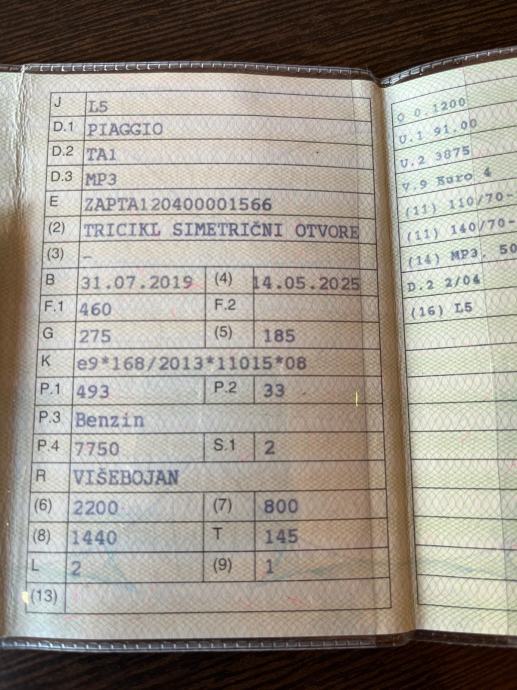 J L5
D.1 PIAGGIO
D.2 TA1
D.3 MP3
E ZAPTA120400001566
(2) TRICIKL SIMETRIČNI OTVORE
(3) –
B 31.07.2019 (4) 14.05.2025
F.1 460 F.2
G 275 (5) 185
K e9*168/2013*11015*08
P.1 493 P.2 33
P.3 Benzin
P.4 7750 S.1 2
R VIŠEBOJAN
(6) 2200 (7) 800
(8) 1440 T 145
L 2 (9) 1
(13)
O 0.1200
U.1 91.00
U.2 3875
V.9 Euro 4
(11) 110/70-
(11) 140/70-
(14) MP3, 50
D.2 2/04
(16) L5